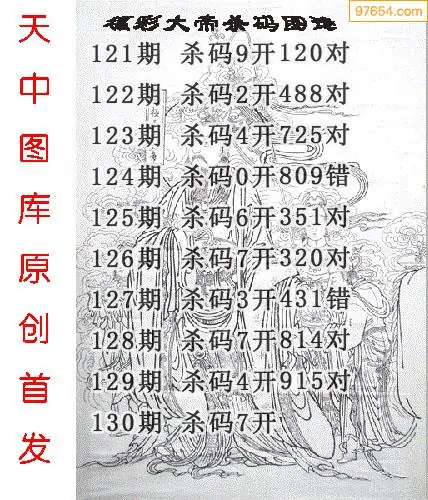 97654.com
福彩大帝杀码图迷
天中图库原创首发
121期 杀码9开120对
122期 杀码2开488对
123期 杀码4开725对
124期 杀码0开809错
125期 杀码6开351对
126期 杀码7开320对
127期 杀码3开431错
128期 杀码7开814对
129期 杀码4开915对
130期 杀码7开